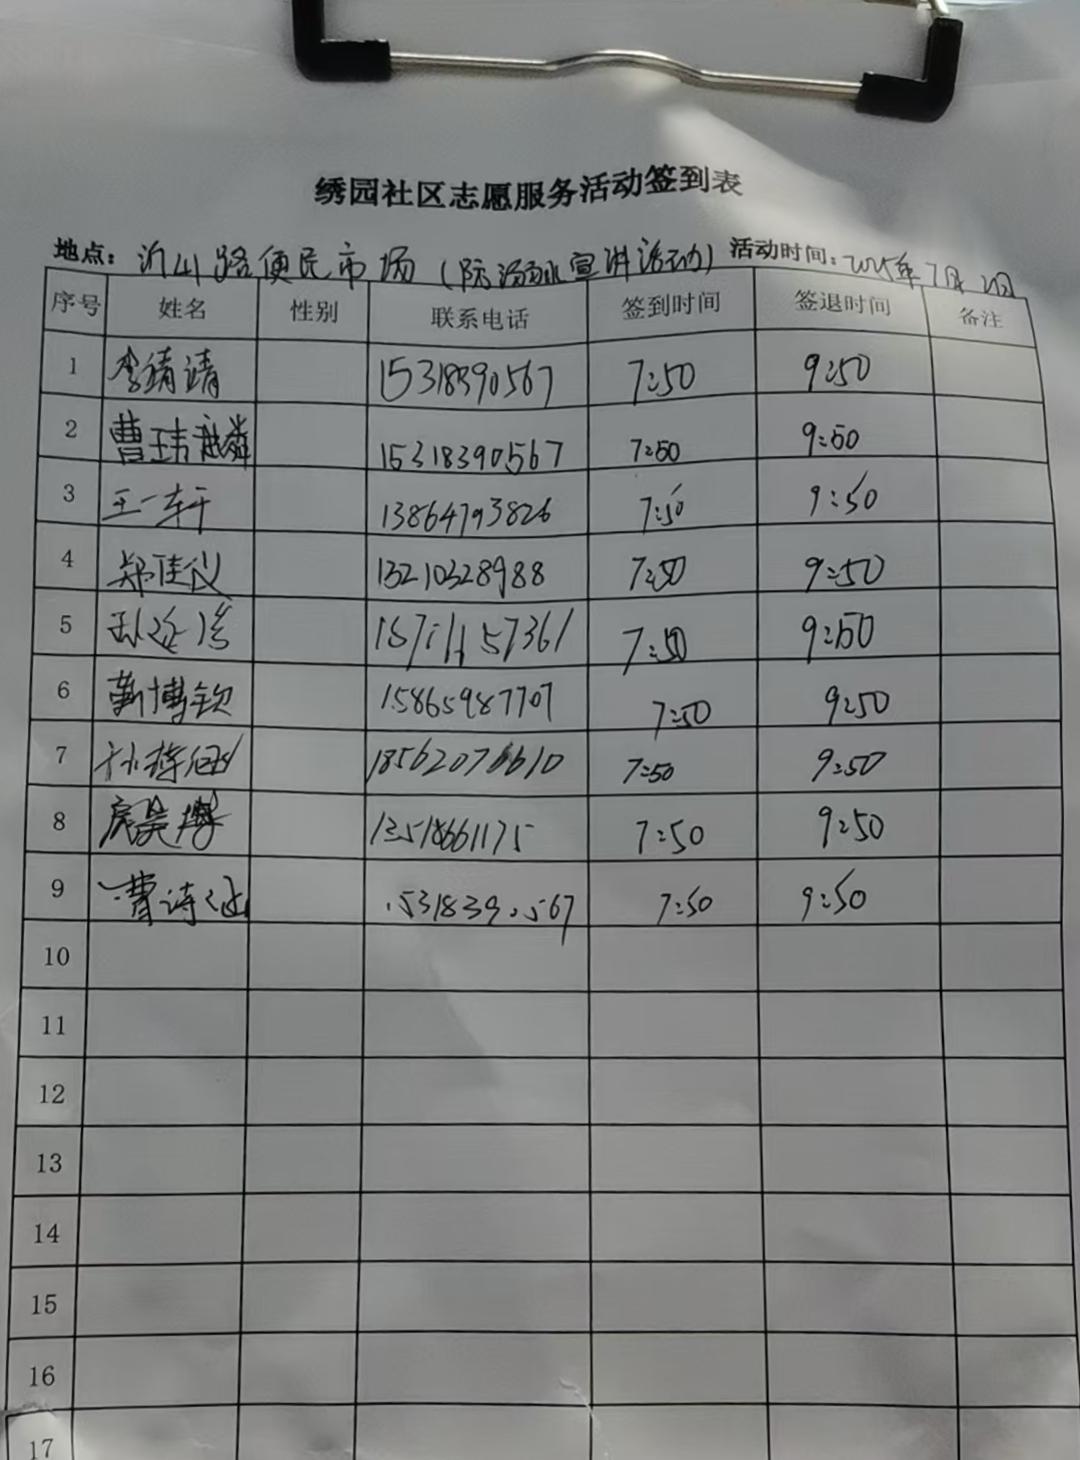 绣园社区志愿服务活动签到表
地点：沂山路便民市场（防溺水宣讲活动）活动时间：2025年7月2日
序号 姓名 性别 联系电话 签到时间 签退时间 备注
1 李靖靖 15318390567 7:50 9:50
2 曹玮麟 15318390567 7:50 9:50
3 王一轩 13864793826 7:50 9:50
4 郑佳仪 13210328988 7:50 9:50
5 7:50 9:50
6 靳博钦 15865987707 7:50 9:50
7 7:50 9:50
8 13518661175 7:50 9:50
9 曹诗涵 15318390567 7:50 9:50
10
11
12
13
14
15
16
17